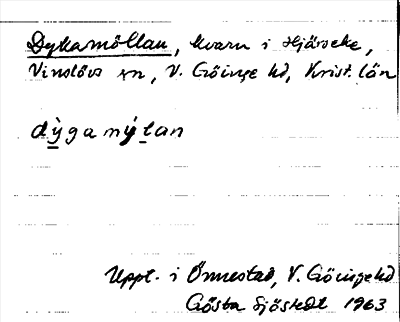 Dykamöllan, kvarn i Hjärseke,
Vinslövs sn, V. Göinge hd, Krist. län
dy̱ga ný̱lan
Uppt. i Önnestad, V. Göinge hd
Gösta Sjöstedt 1963